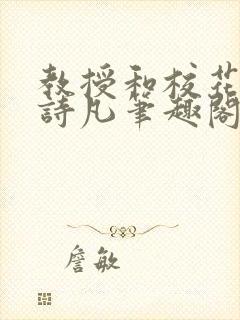 教授和校花
詩凡筆趣閣
詹敏